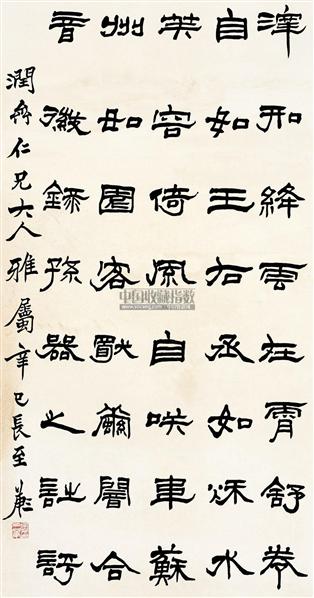 澤如絳雲在霄舒卷
自如王右丞如秋水
芙容倚風自咲韋蘇
州如園客獨繭闇合
音徽錄孫器之詩評
潤仁兄大人雅屬辛巳長至
中国收藏指数